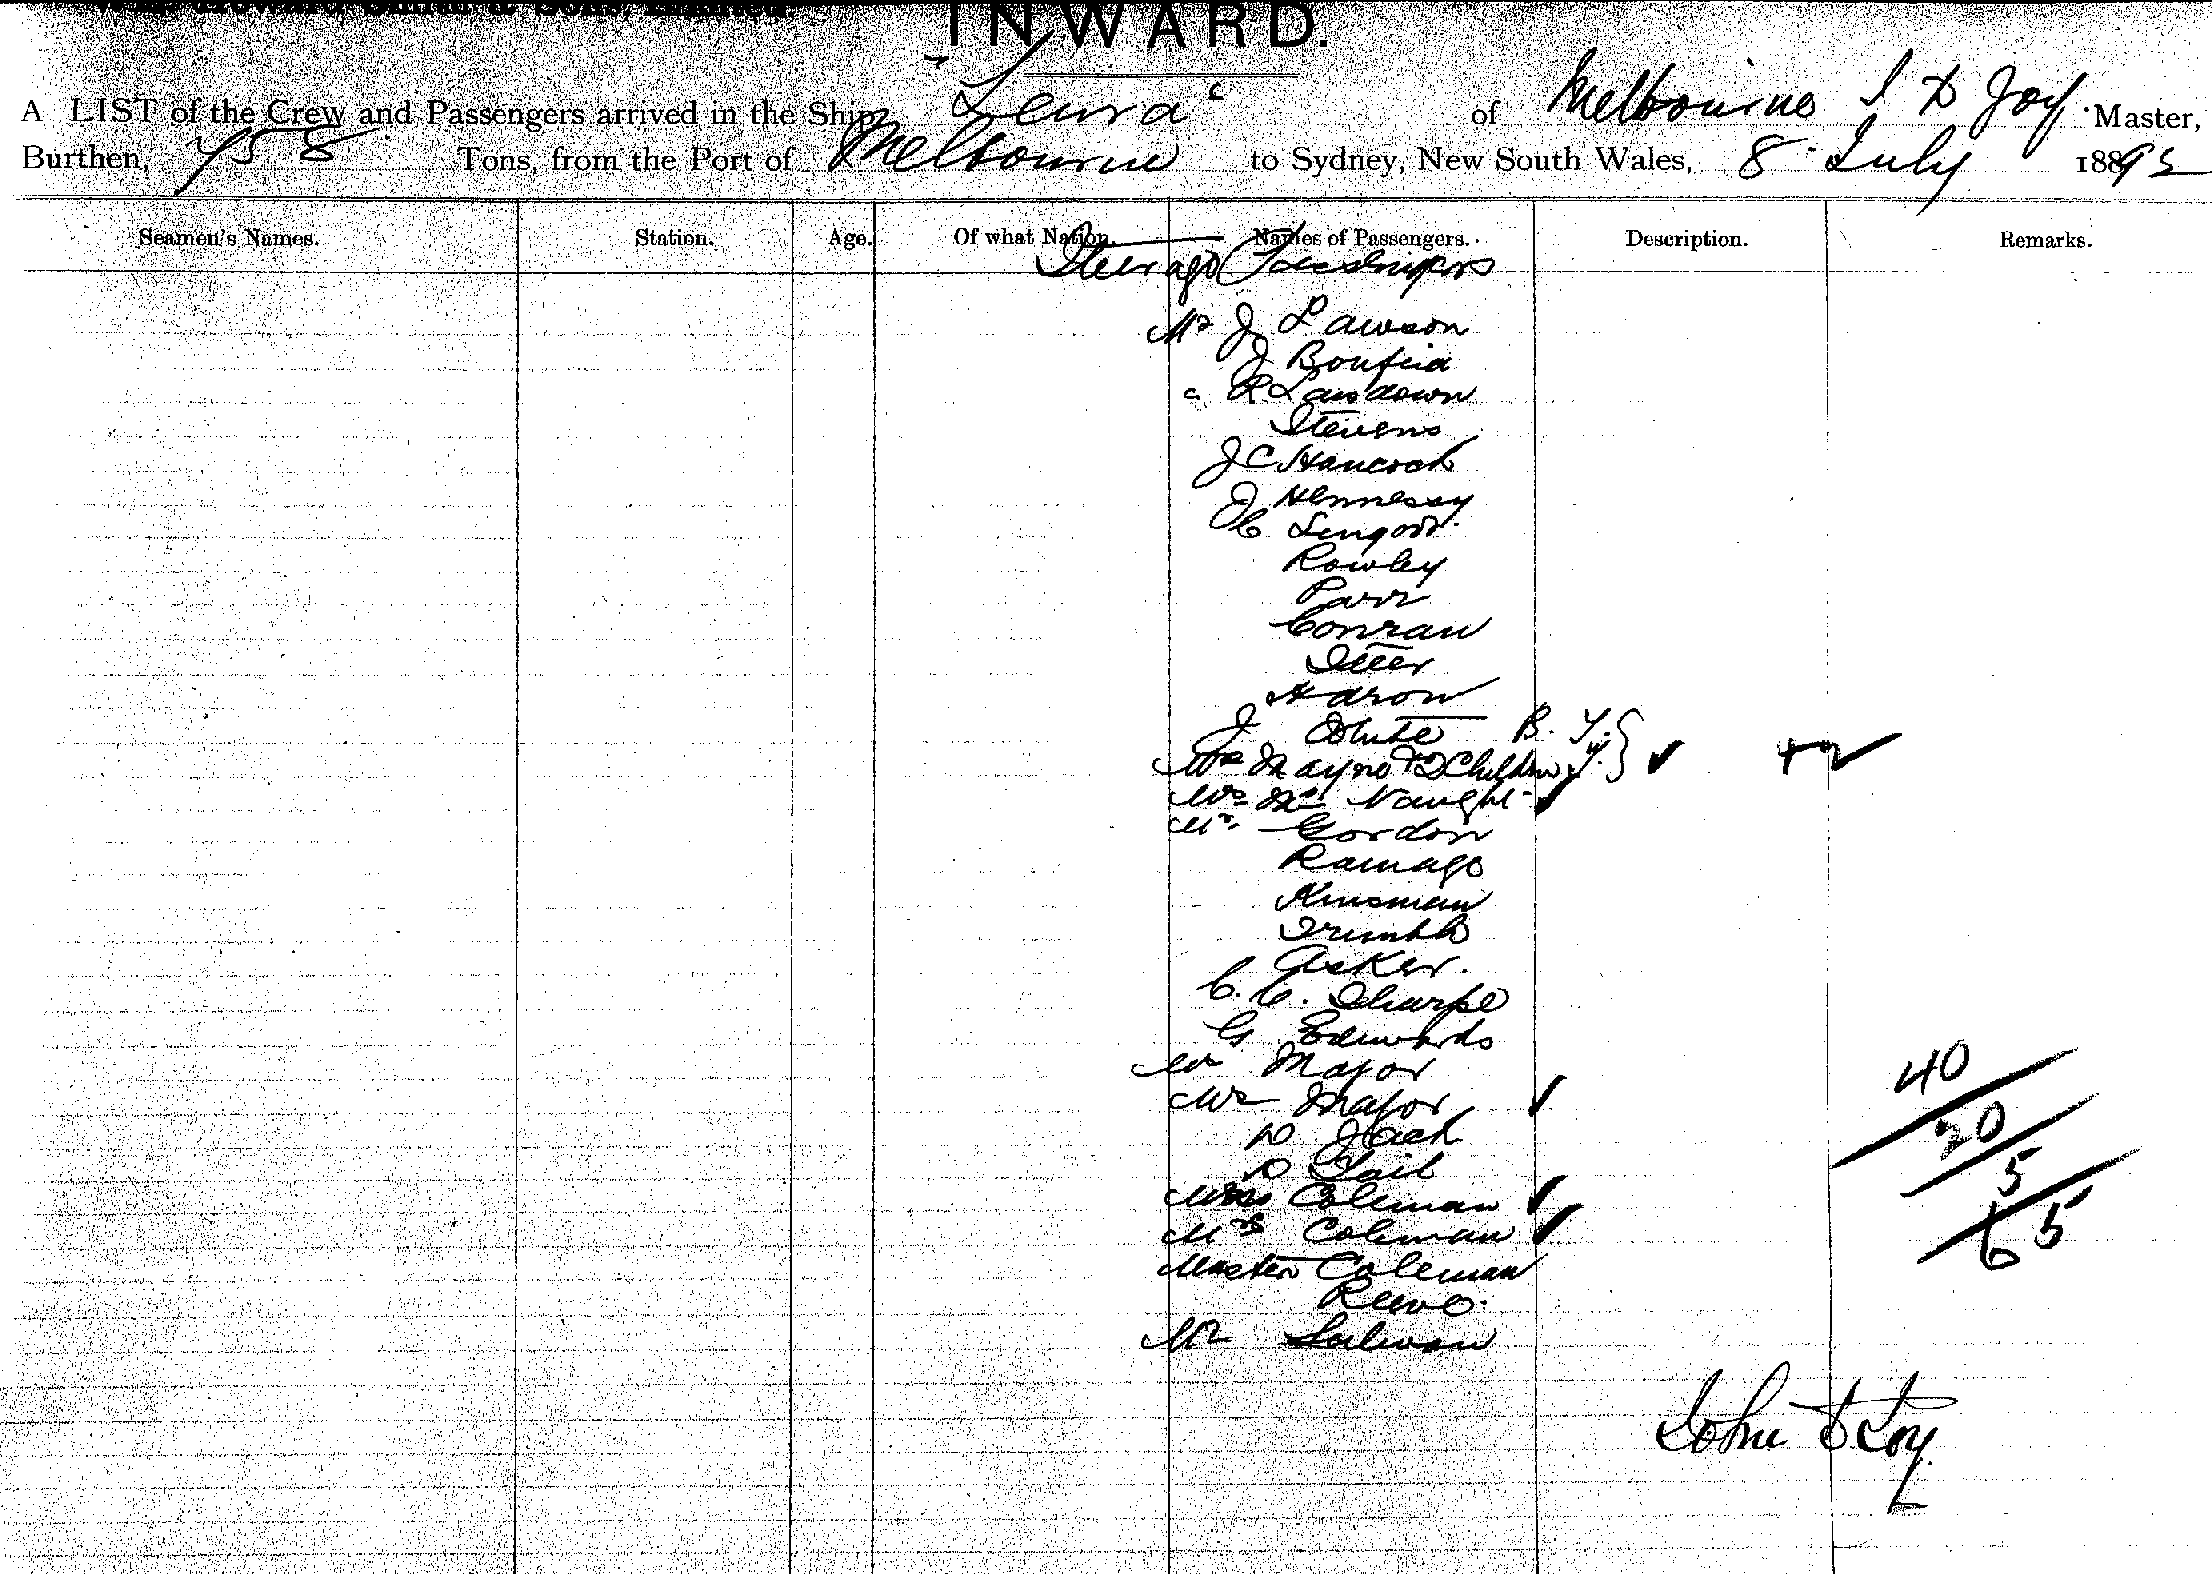 INWARD.
A LIST of the Crew and Passengers arrived in the Ship "Leura" of Melbourne J D Joy Master,
Burthen, 758 Tons, from the Port of Melbourne to Sydney, New South Wales, 8 July 1892
Seamen's Names. Station. Age. Of what Nation. Names of Passengers. Description. Remarks.
Steerage Passengers
Mr J Lawson
J
R Lansdown
Stevens
J C Hancock
J Hennessy
Rowley
Parr
Conran
Aaron
J White
Mrs Mayne & 2 Children
Mrs Mc Naught
Mr Gordon
Ramage
Kinsman
Trimble
Asker.
C. C. Sharpe
G Edwards
Mr Major
Mrs Major
D Jack
D Tait
Miss Coleman
Mrs Coleman
Master Coleman
Reeve
Mr
40
20
5
65
John D Joy